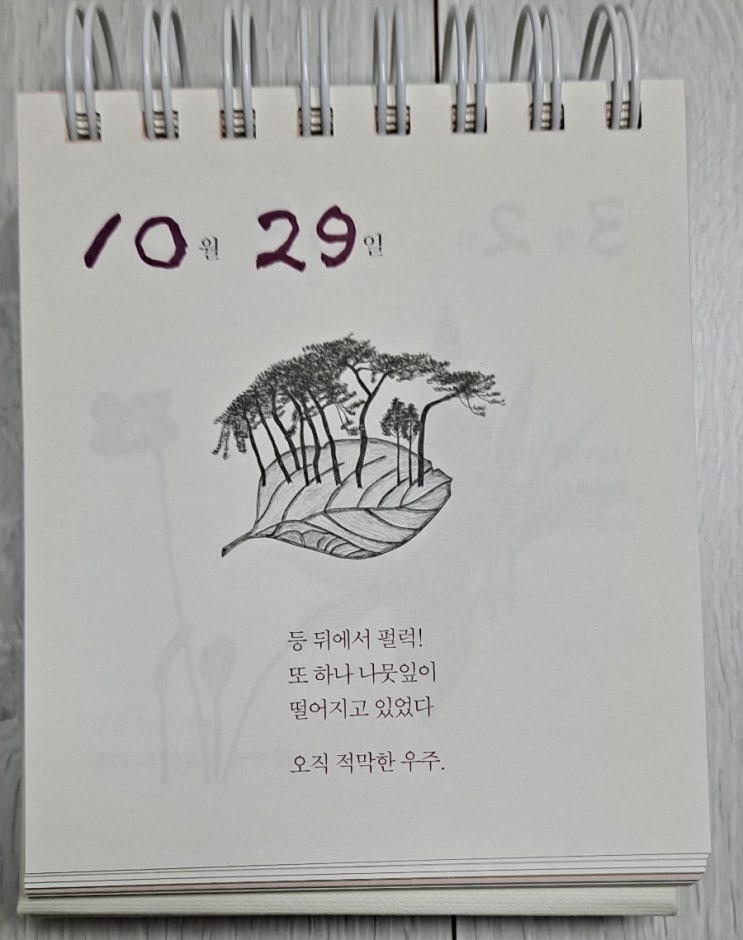 10월 29일
등 뒤에서 펄럭!
또 하나 나뭇잎이
떨어지고 있었다
오직 적막한 우주.